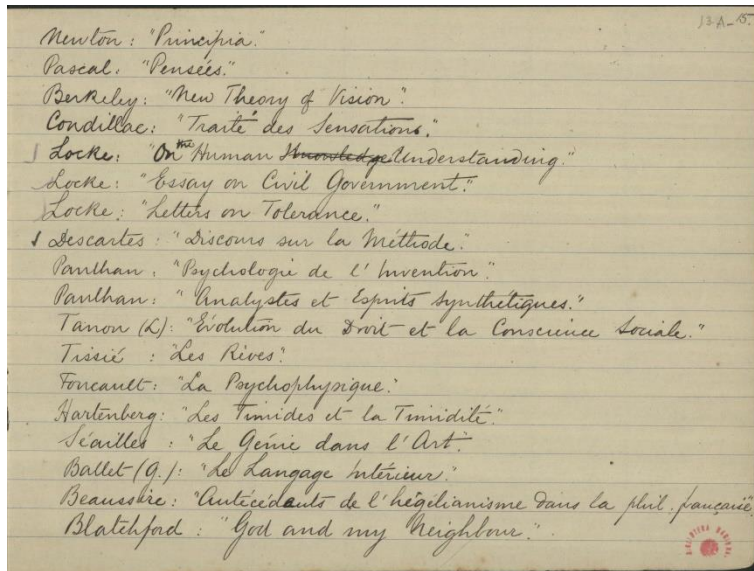 13A-15.
Newton: "Principia."
Pascal. "Pensées."
Berkeley: "New Theory of Vision".
Condillac: "Traité des Sensations."
Locke: "On the Human Knowledge Understanding."
Locke: "Essay on Civil Government."
Locke: "Letters on Tolerance."
Descartes: "Discours sur la Méthode".
Paulhan. "Psychologie de l'Invention".
Paulhan: "Analystes et Esprits synthétiques."
Tanon (L): "Evolution du Droit et la Conscience Sociale."
Tissié : "Les Rêves".
Foucault: "La Psychophysique."
Hartenberg: "Les Timides et la Timidité."
Séailles : "Le Génie dans l'Art.
Ballet (G.): "Le Langage Intérieur".
Beaussire: "Antécédants de l'hégélianisme dans la phil. française".
Blatchford : "God and my Neighbour".
BIBLIOTECA NACIONAL